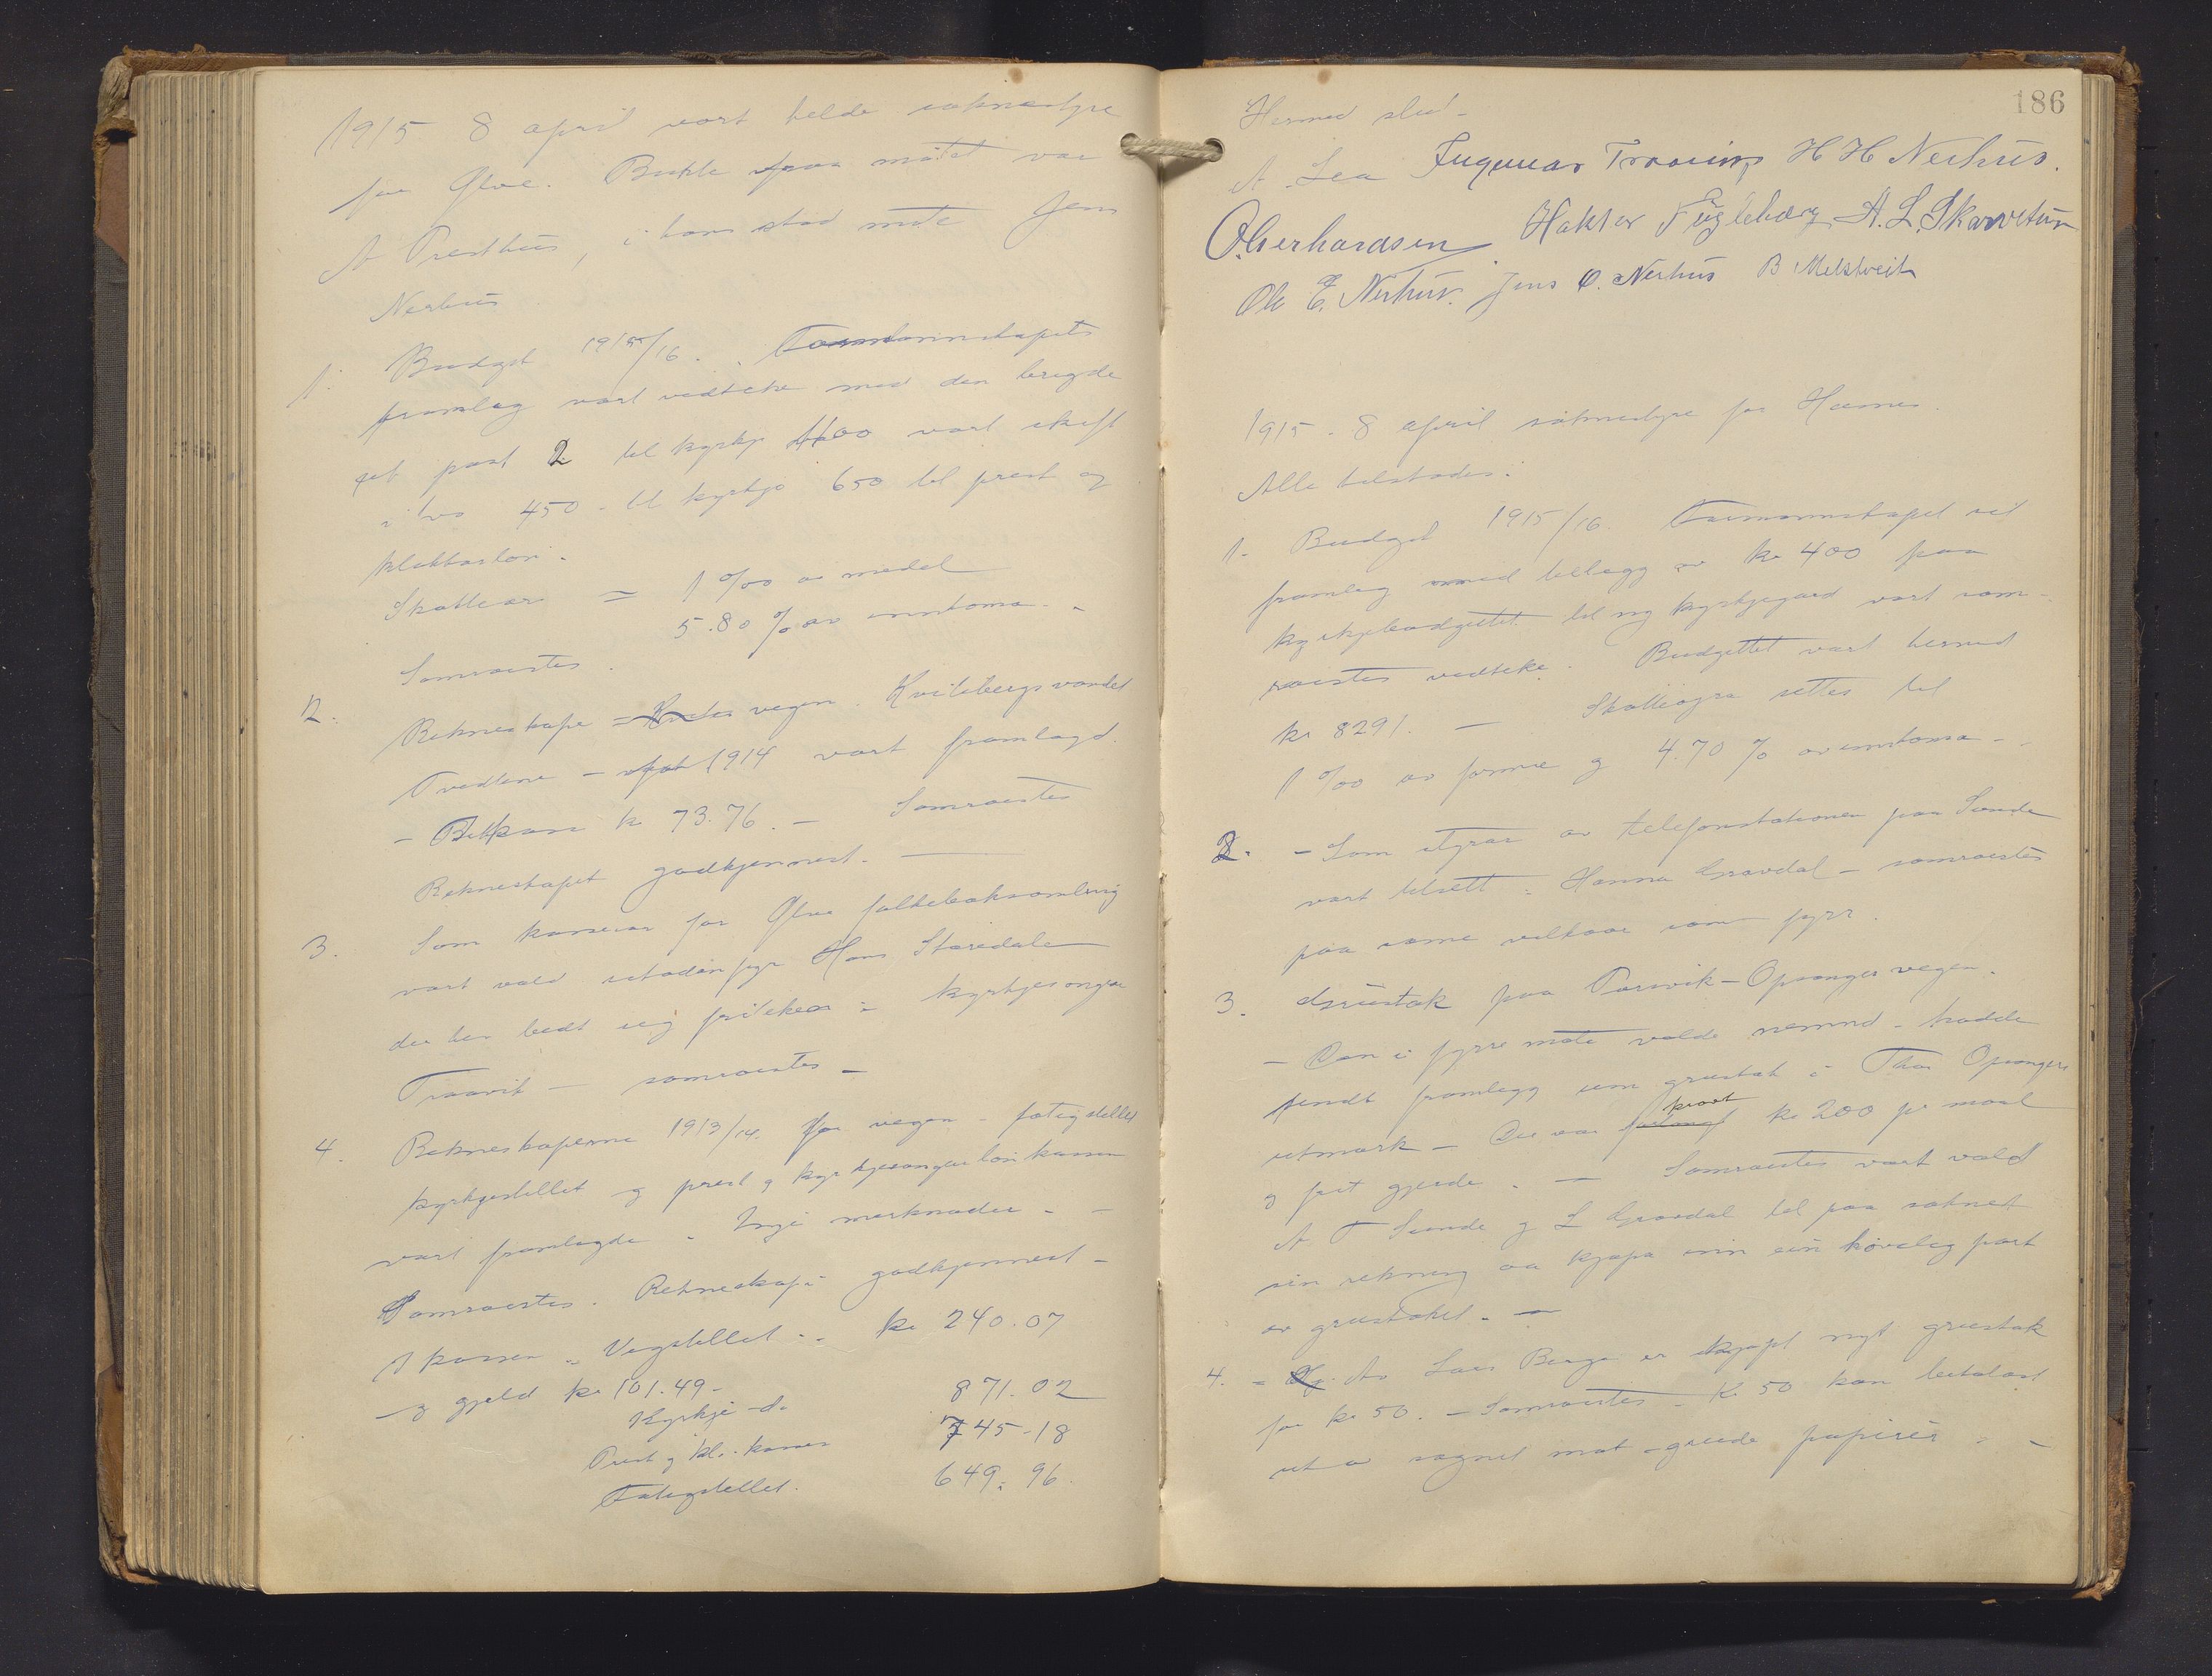 1915 8 april vart halde soknestyre
for Ølve. Burte fraa møtet var
A Presthus, i hans stad møte Jens
Nerhus
1. Budget 1915/16. Formannskapets
framlag vart vedteke med den brigde
at post 2 til kyrkje 1100 vart skift
i tvo 450 - til kyrkje 650 til prest og
klokkarløn.
Skatteøre = 1 ‰ av medel
5.80 % av inntoma -
Samrøistes.
2. Rekneskape = vegen Kvitebergsvandet
Tvedtene - 1914 vart framlagd.
- Beh kassa kr 73.76. - Samrøistes
Rekneskapet godkjennest. -
3. Som kasserar for Ølve folkeboksamling
vart vald istadenfyr Hans Staredale
der har bedt seg friteken: kyrkjesongar
Traavik - samrøistes -
4. Rekneskaperne 1913/14. for vegen - fatigstellet
kyrkjestellet og prest og kyrkjesongarlønkassen
vart framlagde. Ingi merknader - -
Samrøistes. Rekneskapi godkjennest -
I kassen: Vegstellet .. kr 240.07
- og gjeld kr 101.49 -
Kyrkje - do 871.02
Prest og kl. kassen 745-18
Fatigstellet. 649.96.
186
Hermed slut -
A. Lea Ingvar Traavig H H Nerhus.
O. Gerhardsen Haktor Fugleberg A. L. Skarvetun
Ole E. Nerhus. Jens O. Nerhus B Melstveit
1915 - 8 april soknestyre for Hernes.
Alle tilstades.
1. Budget 1915/16. Formannskapet sit
framlag med tillegg av kr 400 paa
kyrkjebudgettet til ny kyrkjegard vart sam-
røistes vedteke. Budgettet vart hermed
kr 8291. - Skatteøyra settes til
1 ‰ av formue og 4.70 % av inntoma -
2. - Som styrar av telefonstationen paa Sunde
vart tilsett: Hanna Gravdal - samrøistes
paa same vilkaar som fyrr.
3. Grustak paa Porsvik-Opsanger vegen.
- Den i fyrre møte valde nemnd - hadde
sendt framlegg um grustak i Thor Opsangers
utmark - Der var kravt kr 200 pr maal
og frit gjerde. - Samrøistes vart vald
A T Sunde og L Gravdal til paa soknet
sin rekning aa kjøpa inn ein høveleg part
av grustaket. -
4. = Av Lars Berge er kjøpt nyt grustak
for kr 50. - Samrøistes - Kr 50 kan betalast
ut av sognet mot - greide papirer - -